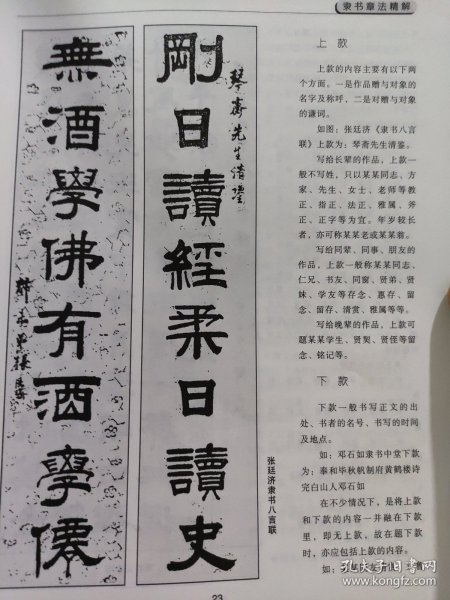 隶书章法精解
剛日讀經柔日讀史
琴斋先生清鉴
無酒學佛有酒學僊
张廷济隶书八言联
上款
上款的内容主要有以下两
个方面。一是作品赠与对象的
名字及称呼，二是对赠与对象
的谦词。
如图：张廷济《隶书八言
联》上款为：琴斋先生清鉴。
写给长辈的作品，上款一
般不写姓，只以某某同志、方
家、先生、女士、老师等教
正、指正、法正、雅属、斧
正、正字等为宜。年岁较长
者，亦可称某某老或某某翁。
写给同辈、同事、朋友的
作品，上款一般称某某同志、
仁兄、书友、同窗、贤弟、贤
妹、学友等存念、惠存、留
念、留存、清赏、雅属等等。
写给晚辈的作品，上款可
题某某学生、贤契、贤侄等留
念、铭记等。
下款
下款一般书写正文的出
处、书者的名号、书写的时间
及地点。
如：邓石如隶书中堂下款
为：奉和毕秋帆制府黄鹤楼诗
完白山人邓石如
在不少情况下，是将上款
和下款的内容一并融在下款
里，即无上款，故在题下款
时，亦应包括上款的内容。
如：
23
孔夫子旧书网